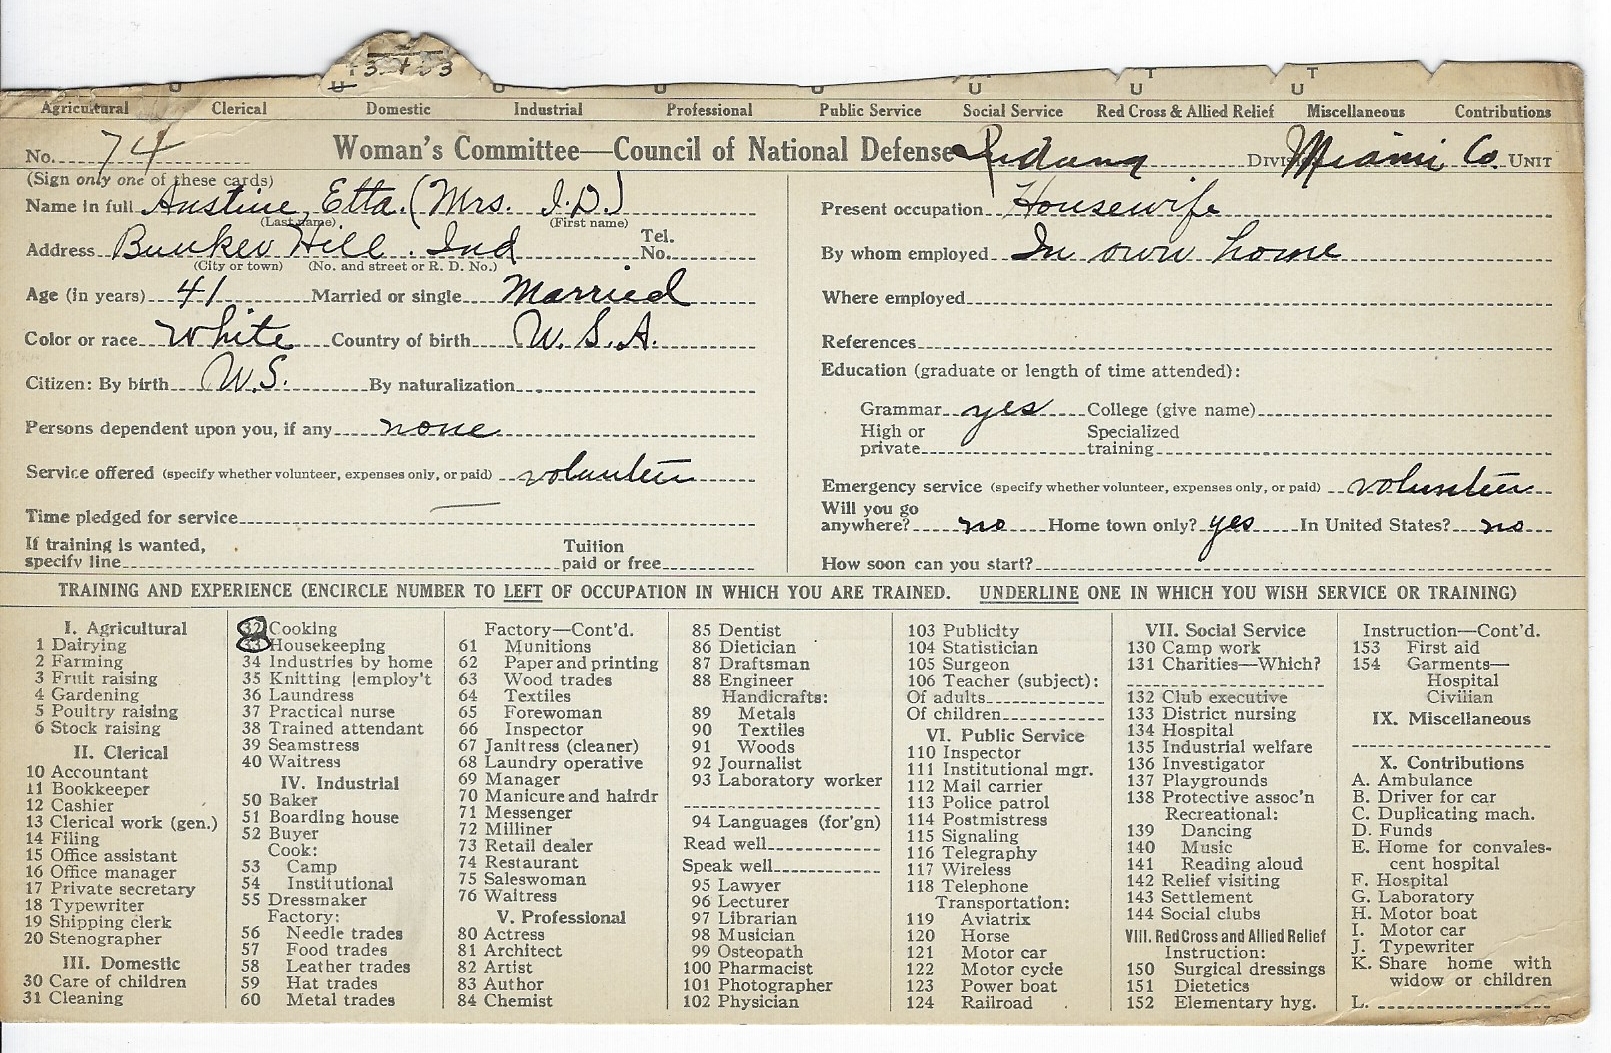 3 + 3 3
U U U U U U U U
Agricultural Clerical Domestic Industrial Professional Public Service Social Service Red Cross & Allied Relief Miscellaneous Contributions
No. 74 Woman's Committee—Council of National Defense Indiana Division Miami Co. Unit
(Sign only one of these cards)
Name in full Austine, Etta. (Mrs. I.D.)
(Last name) (First name)
Address Bunker Hill. Ind Tel. No.
(City or town) (No. and street or R. D. No.)
Age (in years) 41 Married or single Married
Color or race White Country of birth U. S. A.
Citizen: By birth U.S. By naturalization
Persons dependent upon you, if any none
Service offered (specify whether volunteer, expenses only, or paid) volunteer
Time pledged for service —
If training is wanted,
specify line Tuition paid or free
Present occupation Housewife
By whom employed In own home
Where employed
References
Education (graduate or length of time attended):
Grammar yes College (give name)
High or private Specialized training
Emergency service (specify whether volunteer, expenses only, or paid) volunteer
Will you go
anywhere? no Home town only? yes In United States? no
How soon can you start?
TRAINING AND EXPERIENCE (ENCIRCLE NUMBER TO LEFT OF OCCUPATION IN WHICH YOU ARE TRAINED. UNDERLINE ONE IN WHICH YOU WISH SERVICE OR TRAINING)
I. Agricultural
1 Dairying
2 Farming
3 Fruit raising
4 Gardening
5 Poultry raising
6 Stock raising
II. Clerical
10 Accountant
11 Bookkeeper
12 Cashier
13 Clerical work (gen.)
14 Filing
15 Office assistant
16 Office manager
17 Private secretary
18 Typewriter
19 Shipping clerk
20 Stenographer
III. Domestic
30 Care of children
31 Cleaning
32 Cooking
33 Housekeeping
34 Industries by home
35 Knitting [employ't
36 Laundress
37 Practical nurse
38 Trained attendant
39 Seamstress
40 Waitress
IV. Industrial
50 Baker
51 Boarding house
52 Buyer
Cook:
53 Camp
54 Institutional
55 Dressmaker
Factory:
56 Needle trades
57 Food trades
58 Leather trades
59 Hat trades
60 Metal trades
Factory—Cont'd.
61 Munitions
62 Paper and printing
63 Wood trades
64 Textiles
65 Forewoman
66 Inspector
67 Janitress (cleaner)
68 Laundry operative
69 Manager
70 Manicure and hairdr
71 Messenger
72 Milliner
73 Retail dealer
74 Restaurant
75 Saleswoman
76 Waitress
V. Professional
80 Actress
81 Architect
82 Artist
83 Author
84 Chemist
85 Dentist
86 Dietician
87 Draftsman
88 Engineer
Handicrafts:
89 Metals
90 Textiles
91 Woods
92 Journalist
93 Laboratory worker
94 Languages (for'gn)
Read well
Speak well
95 Lawyer
96 Lecturer
97 Librarian
98 Musician
99 Osteopath
100 Pharmacist
101 Photographer
102 Physician
103 Publicity
104 Statistician
105 Surgeon
106 Teacher (subject):
Of adults
Of children
VI. Public Service
110 Inspector
111 Institutional mgr.
112 Mail carrier
113 Police patrol
114 Postmistress
115 Signaling
116 Telegraphy
117 Wireless
118 Telephone
Transportation:
119 Aviatrix
120 Horse
121 Motor car
122 Motor cycle
123 Power boat
124 Railroad
VII. Social Service
130 Camp work
131 Charities—Which?
132 Club executive
133 District nursing
134 Hospital
135 Industrial welfare
136 Investigator
137 Playgrounds
138 Protective assoc'n
Recreational:
139 Dancing
140 Music
141 Reading aloud
142 Relief visiting
143 Settlement
144 Social clubs
VIII. Red Cross and Allied Relief
Instruction:
150 Surgical dressings
151 Dietetics
152 Elementary hyg.
Instruction—Cont'd.
153 First aid
154 Garments—
Hospital
Civilian
IX. Miscellaneous
X. Contributions
A. Ambulance
B. Driver for car
C. Duplicating mach.
D. Funds
E. Home for convales-
cent hospital
F. Hospital
G. Laboratory
H. Motor boat
I. Motor car
J. Typewriter
K. Share home with
widow or children
L.